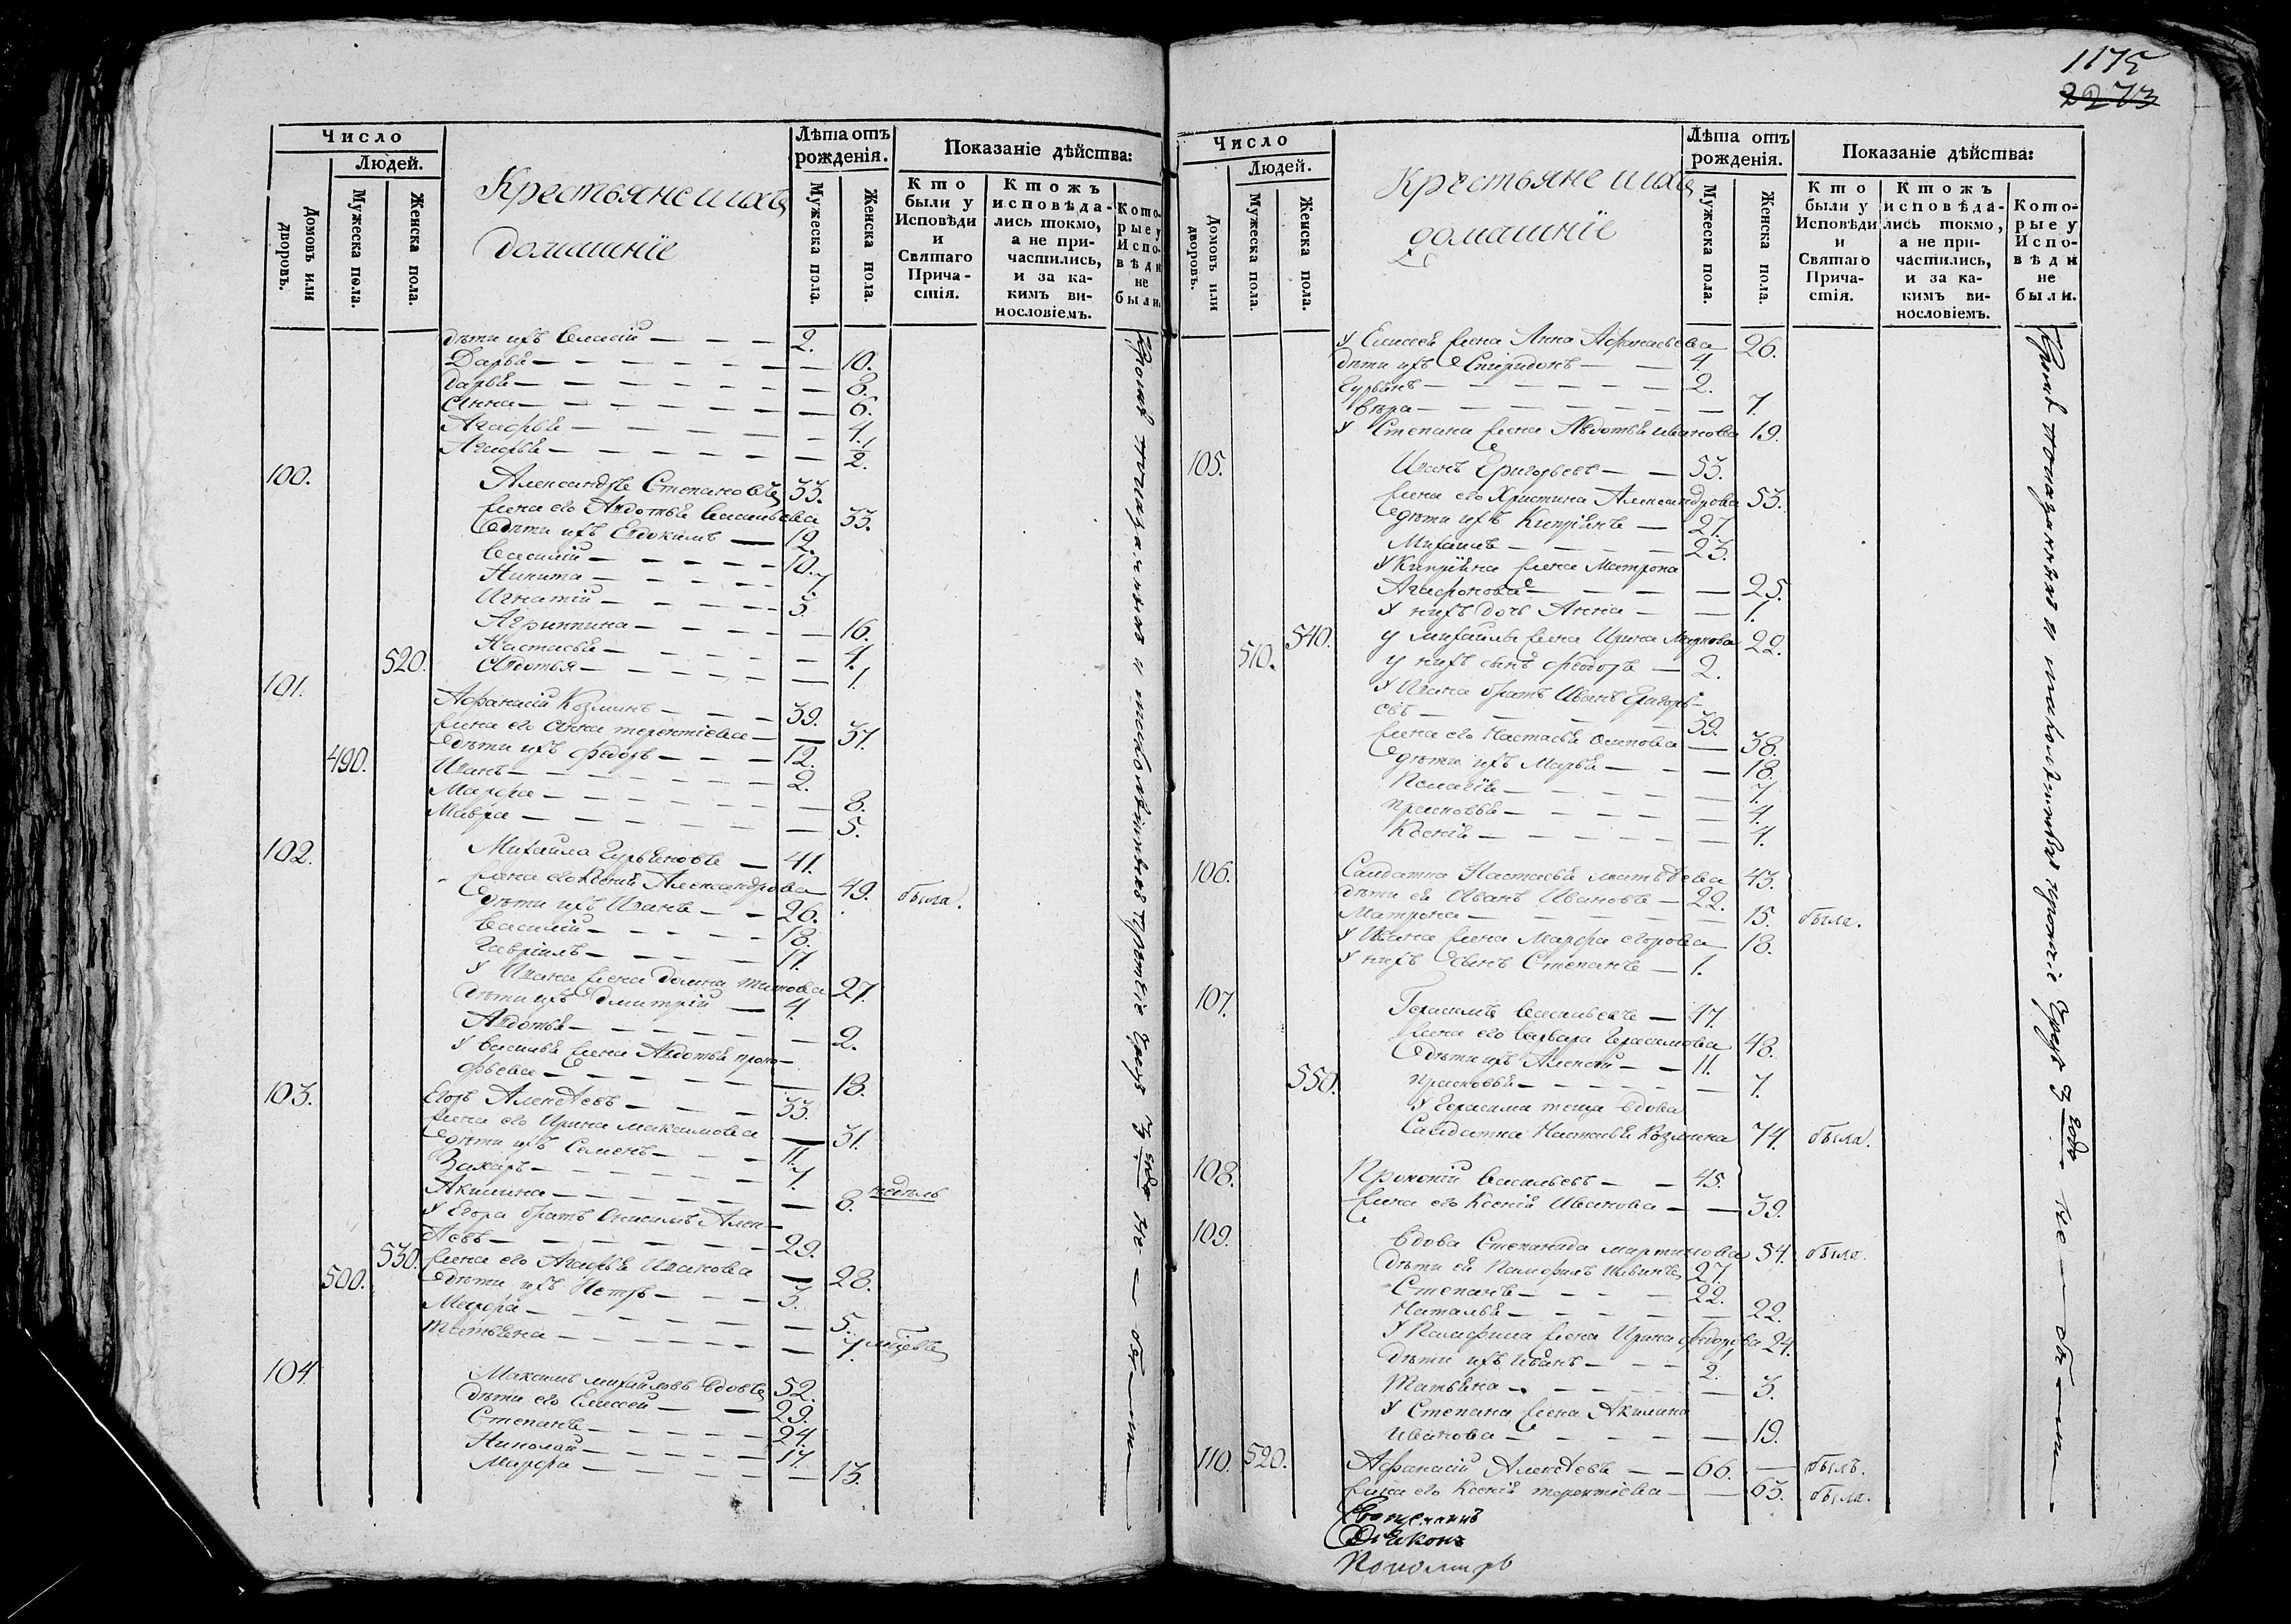 Число
Людей.
Домовъ или дворовъ.
Мужеска пола.
Женска пола.
Крестьяне и ихъ
домашніе
Лѣта отъ рожденія.
Мужеска пола.
Женска пола.
Показаніе дѣйства:
Кто были у Исповѣди и Святаго Причастія.
Ктожъ исповѣдались токмо, а не причастились, и за какимъ винословіемъ.
Которые у Исповѣди не были.
дѣти ихъ — — — 2.
Дарья — — — 10.
Дарья — — — 8.
Анна — — — 6.
Агафья — — — 4.
Агафья — — — 1/2.
100. Александръ Степановъ 33.
жена его Авдотья Васильева 33.
дѣти ихъ Евдокимъ — 12.
Василій — — — 10.
Никита — — — 7.
Игнатій — — — 5.
Агриппина — — — 16.
Настасья — — — 4.
520. Авдотья — — — 1.
101.
Афанасій Козминъ — — — 39.
жена его Анна терентіева — — 37.
дѣти ихъ Федоръ — — — 12.
490. Иванъ — — — 2.
Марфа — — — 8.
Мавра — — — 5.
102. Михайла Гурьяновъ — 41.
жена его Ксенія Александрова 49. была.
дѣти ихъ Иванъ — — 26.
Василій — — — 18.
Гавріилъ — — — 17.
у Ивана жена Титова 27.
дѣти ихъ Дмитрій — 4.
Авдотья — — — 2.
у Василья жена Авдотья проко-
фьева — — — 18.
103. Егоръ Алексѣевъ — — — 33.
жена его Ирина Максимова — 31.
дѣти ихъ Семенъ — — — 11.
Захаръ — — — 7.
Акилина — — — 8. недѣль
у Егора братъ Онисимъ Алек-
сѣевъ — — — 29.
530. жена его Агафья Иванова — 28.
500. дѣти ихъ Петръ — — — 3.
Марфа — — — 5.
татьяна — — — 7. мѣсяцевъ
104. Максимъ михайловъ вдовъ 52.
дѣти его Елисей — — 29.
Степанъ — — — 24.
Николай — — — 17.
Марфа — — — 13.
Кромѣ показанныхъ и малолѣтныхъ прочіе чрезъ 3 года не — были —
1175
2273
Число
Людей.
Домовъ или дворовъ.
Мужеска пола.
Женска пола.
Крестьяне и ихъ
домашніе
Лѣта отъ рожденія.
Мужеска пола.
Женска пола.
Показаніе дѣйства:
Кто были у Исповѣди и Святаго Причастія.
Ктожъ исповѣдались токмо, а не причастились, и за какимъ винословіемъ.
Которые у Исповѣди не были.
у Елисея жена Анна Афанасьева 26.
дѣти ихъ Спиридонъ — — 4.
Гурьянъ — — — 2.
Вѣра — — — 7.
у Степана жена Авдотья иванова 19.
105. Иванъ Григорьевъ — — 53.
жена его Христина Александрова 53.
дѣти ихъ Кипріянъ — 27.
Михаилъ — — — 23.
у Кипріяна жена Матрона
Агафонова — — — 25.
у нихъ дочь Анна — — 1.
540. у михайлы жена Ирина Маркова 22.
510. у нихъ сынъ Феодоръ — 2.
у Ивана братъ Иванъ Григорь-
евъ — — — 39.
жена его Настасья Осипова — 38.
дѣти ихъ Марья — — — 18.
Пелагія — — — 7.
прасковья — — — 4.
Ксенія — — — 4.
106. Салдатка Настасья матвѣева 43.
дѣти ея Иванъ Ивановъ — 22.
Матрона — — — 15. была.
у Ивана жена Марфа егорова 18.
у нихъ сынъ Степанъ — 1.
107. Герасимъ Васильевъ — 47.
жена его Варвара Герасимова 48.
дѣти ихъ Алексѣй — — 11.
550. прасковья — — — 7.
у Герасима теща вдова
Салдатка Настасья Козмина 74. была.
108. Прокопій Васильевъ — — 45.
жена его Ксенія Иванова — — 39.
109. вдова Степанида мартинова 54. была.
дѣти ея Памфилъ 27.
Степанъ — — — 22.
Наталья — — — 22.
у Памфила жена Ирина федорова 24.
дѣти ихъ Иванъ — — — 1/2.
Татьяна — — — 3.
у Степана жена Акилина
иванова — — — 19.
110. 520. Афанасій Алексѣевъ — — 66. — былъ.
жена его Ксенія терентіева — — 63. была.
Кромѣ показанныхъ и малолѣтныхъ прочіе чрезъ 3 года не — были —
Священникъ
Діаконъ
Пономарь